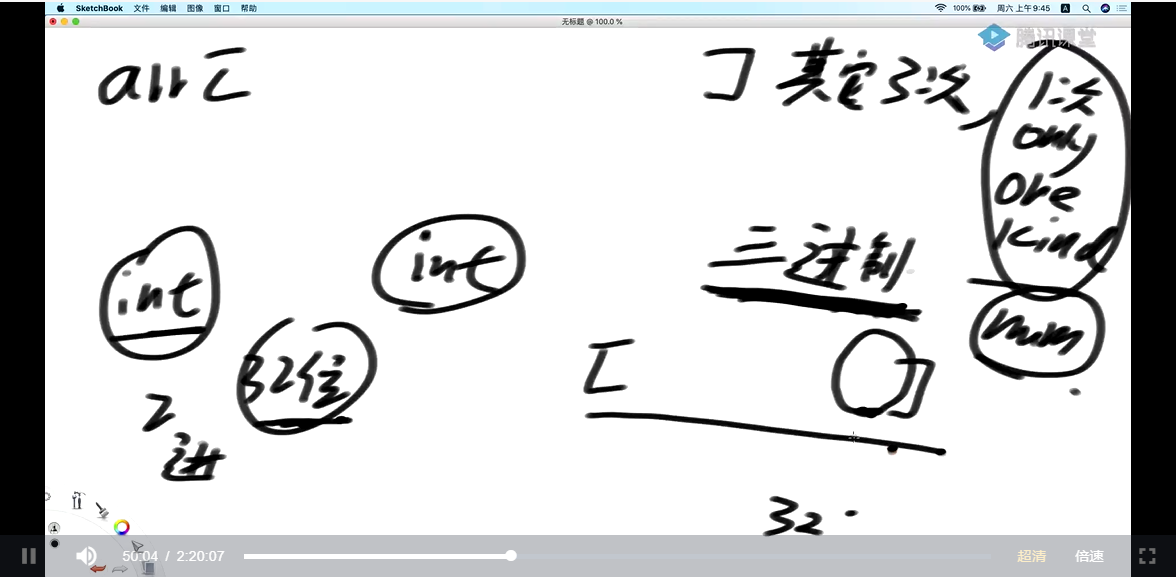 SketchBook 文件 编辑 图像 窗口 帮助
100% 周六 上午9:45 A
无标题 @ 100.0 %
腾讯课堂
arr [ ] 其它3次,
1次
only
one
kind
int int 三进制
num
32位 [ ]
2
进
32
50:04 / 2:20:07 超清 倍速